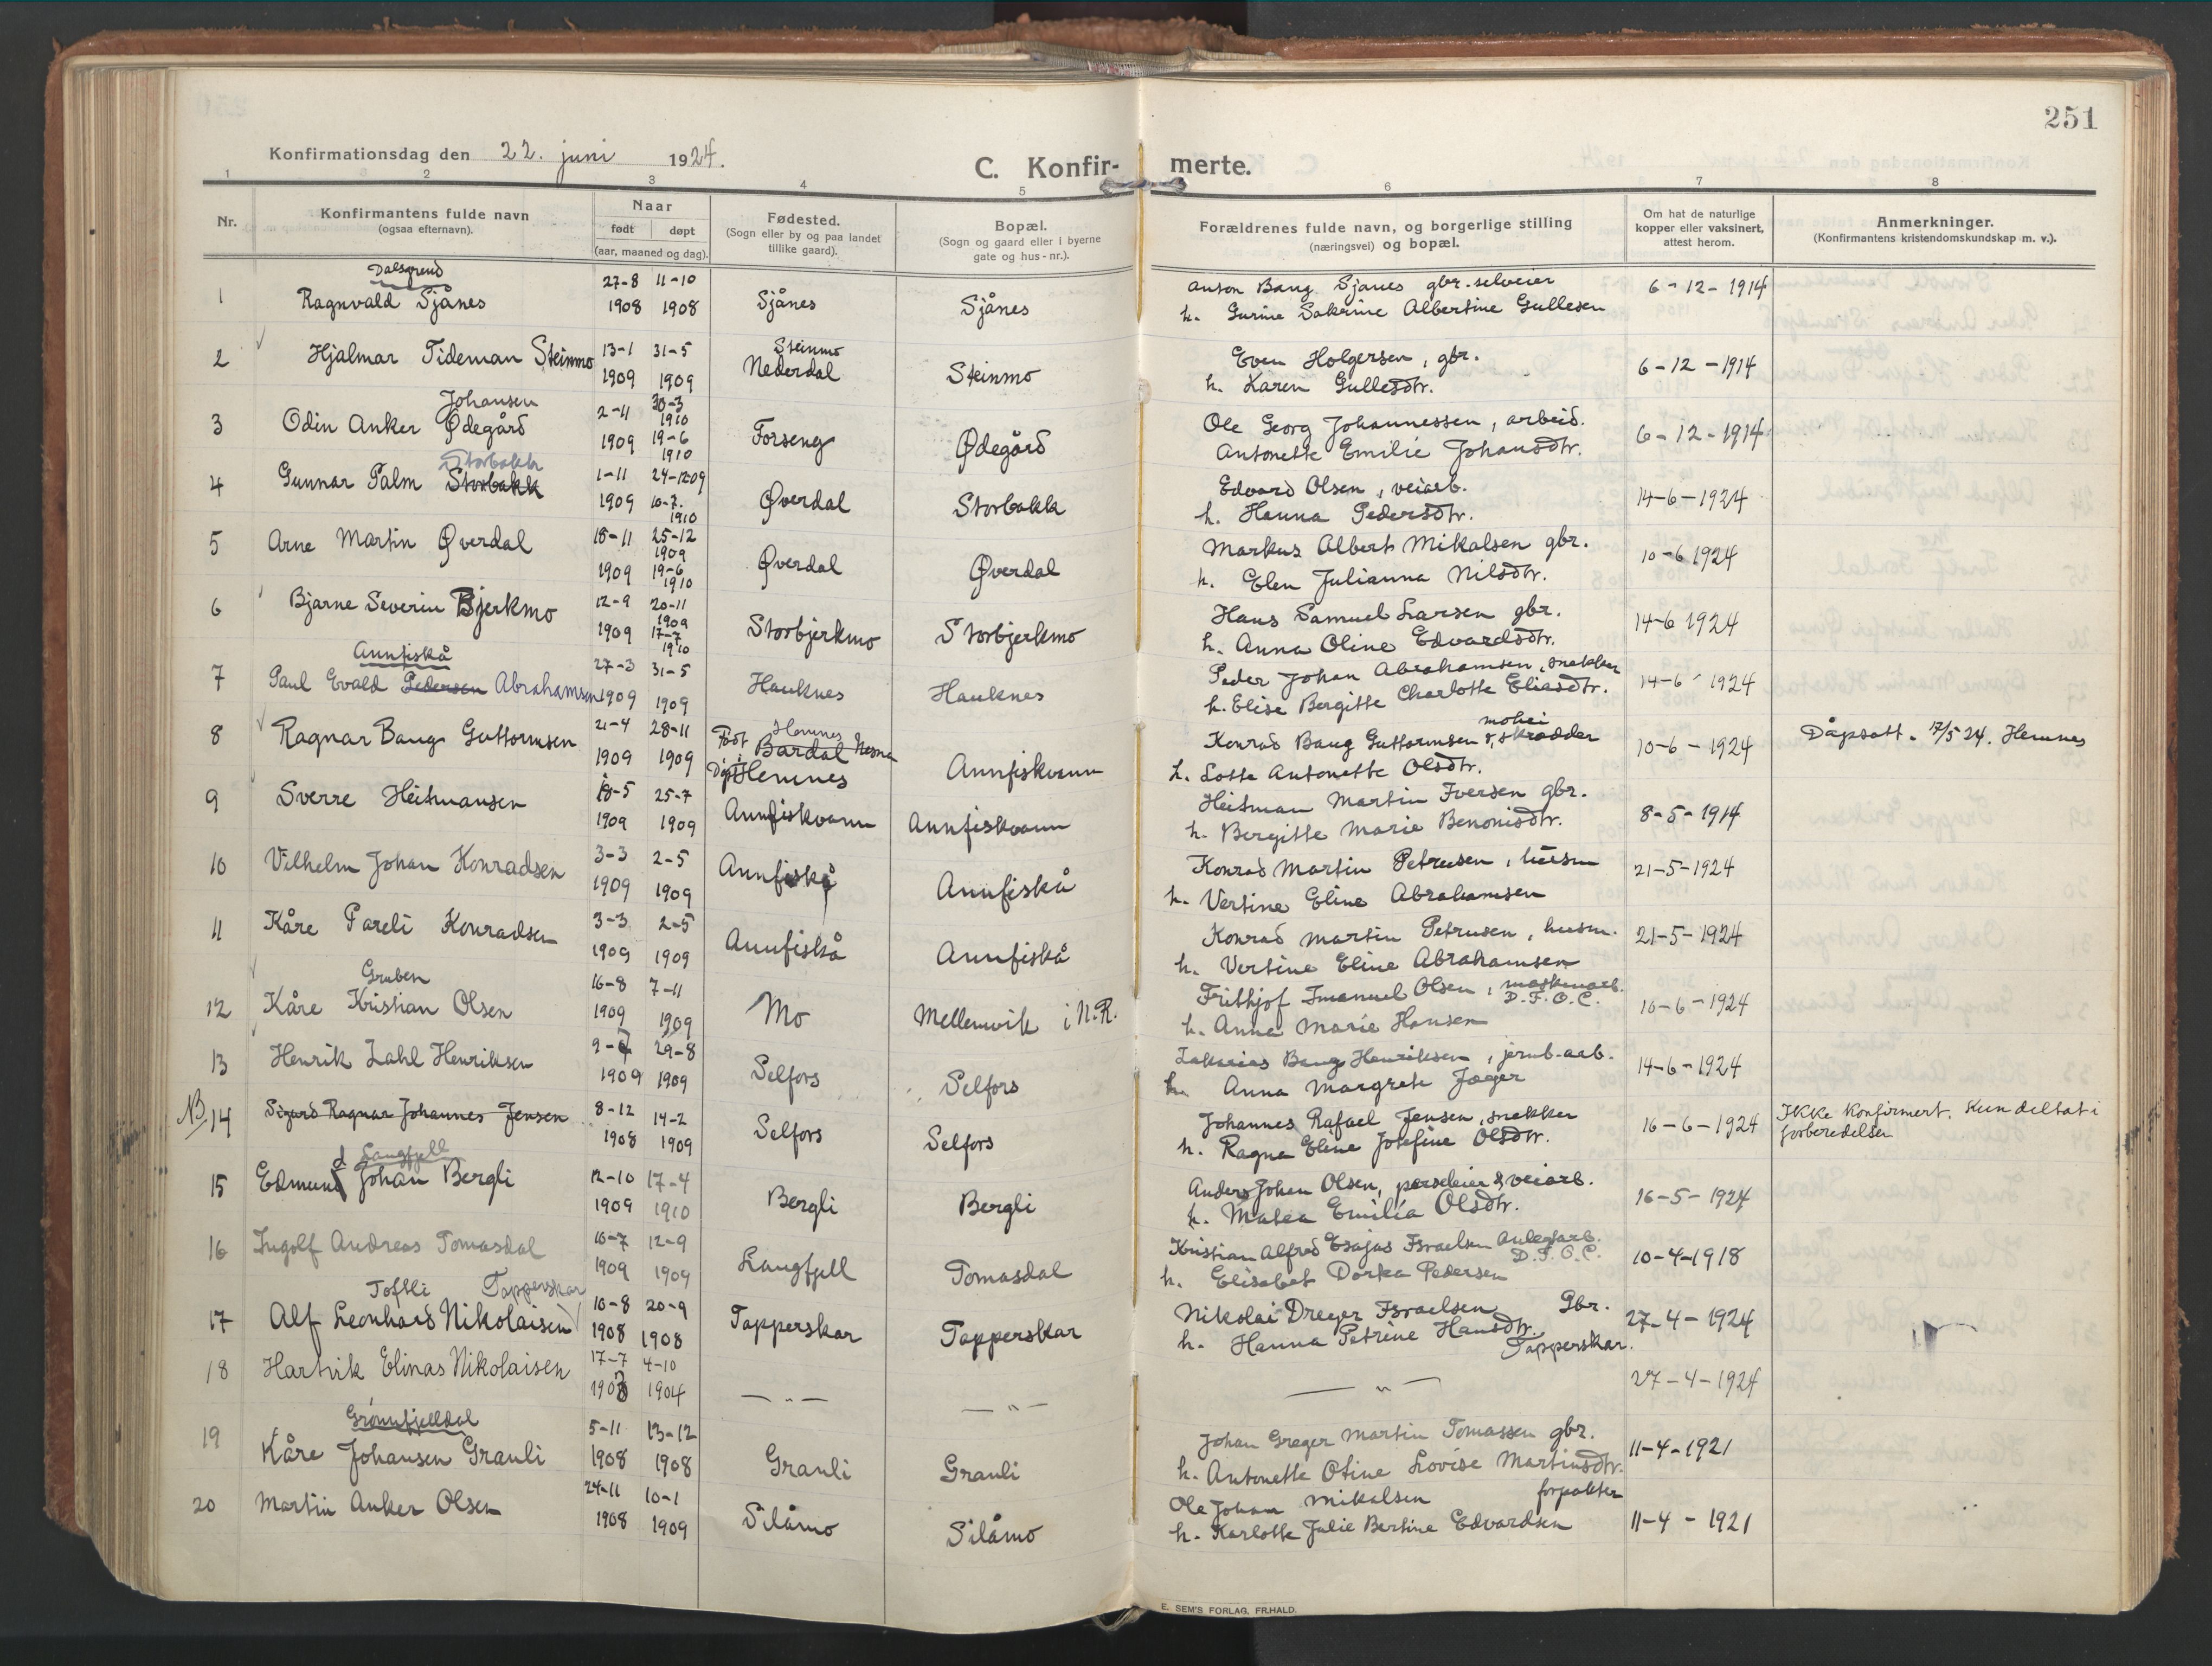 251
Konfirmationsdag den 22. juni 1924.
C. Konfir- merte.
1 2 3 4 5 6 7 8
Nr.
Konfirmantens fulde navn
(ogsaa efternavn).
Naar
født døpt
(aar, maaned og dag).
Fødested.
(Sogn eller by og paa landet
tillike gaard).
Bopæl.
(Sogn og gaard eller i byerne
gate og hus-nr.).
Forældrenes fulde navn, og borgerlige stilling
(næringsvei) og bopæl.
Om hat de naturlige
kopper eller vaksinert,
attest herom.
Anmerkninger.
(Konfirmantens kristendomskundskap m. v.).
Dalsgrend
27-8 11-10
1 Ragnvald Sjånes 1908 1908 Sjånes Sjånes
Anton Bang Sjånes gbr. selveier
h. Gurine Sakrine Albertine Gullesen
6-12-1914
2 Hjalmar Tideman Steinmo 13-1 31-5
1909 1909
Steinmo
Nederdal Steinmo
Even Holgersen, gbr.
h. Karen Gullesdtr.
6-12-1914
Johansen
3 Odin Anker Ødegård 2-11 30-3
1910
1909 19-6
1910
Forseng Ødegård
Ole Georg Johannessen, arbeid.
Antonette Emilie Johansdtr.
6-12-1914
Storbakk
4 Gunnar Palm Storbakk 1-11 24-12 09
1909 10-7.
1910
Øverdal Storbakk
Edvard Olsen, veiarb.
h. Hanna Pedersdtr.
14-6-1924
5 Arne Martin Øverdal 18-11 25-12
1909
1909 19-6
1910
Øverdal Øverdal
Markus Albert Mikalsen gbr.
h. Elen Julianna Nilsdtr.
10-6 1924
6 Bjarne Severin Bjerkmo 12-9 20-11
1909
1909 17-7
1910
Storbjerkmo Storbjerkmo
Hans Samuel Larsen gbr.
h. Anna Oline Edvardsdtr.
14-6 1924
Annfiskå
7 Paul Evald Pedersen Abrahamsen 27-3 31-5
1909 1909
Hauknes Hauknes
Peder Johan Abrahamsen, snekker
h. Elise Bergitte Charlotte Eliasdtr.
14-6-1924
8 Ragnar Baug Guttormsen 21-4 28-11
1909 1909
Hemnes
Født Bardal Nesna
Døpt Hemnes
Annfiskvann
mohei
Konrad Baug Guttormsen, skrædder
h. Lotte Antonette Olsdtr.
10-6-1924
Dåpsatt. 17/5 24. Hemnes
9 Sverre Heitmansen 18-5 25-7
1909 1909
Annfiskvann Annfiskvann
Heitman Martin Iversen gbr.
h. Bergitte Marie Benonisdtr.
8-5-1914
10 Vilhelm Johan Konradsen 3-3 2-5
1909 1909
Annfiskå Annfiskå
Konrad Martin Petrusen, husm
h. Vertine Eline Abrahamsen
21-5-1924
11 Kåre Pareli Konradsen 3-3 2-5
1909 1909
Annfiskå Annfiskå
Konrad Martin Petrusen, husm.
h. Vertine Eline Abrahamsen
21-5-1924
Gruben
12 Kåre Kristian Olsen 16-8 7-11
1909 1909
Mo Mellemvik i N.R.
Frithjof Imanuel Olsen, maskinarb.
D.F.O.C.
h. Anne Marie Hansen
10-6-1924
13 Henrik Zahl Henriksen 9-7 29-8
1909 1909
Selfors Selfors
Zakarias Baug Henriksen, jernb-arb.
h. Anna Margrete Jæger
14-6-1924
NB 14 Sigurd Ragnar Johannes Jensen 8-12 14-2
1908 1909
Selfors Selfors
Johannes Rafael Jensen, snekker
h. Ragna Eline Josefine Olsdtr.
16-6-1924
Ikke konfirmert. Kun deltat i
forberedelsen
d Langfjell
15 Edmund Johan Bergli 12-10 17-4
1909 1910
Bergli Bergli
Anders Johan Olsen, parseleier & veiarb.
h. Matea Emilia Olsdtr.
16-5-1924
16 Ingolf Andreas Tomasdal 10-7 12-9
1909 1909
Langfjell Tomasdal
Kristian Alfred Esajas Israelsen anlegsarb.
D.F.O.C.
h. Elisabet Dorka Pedersen
10-4-1918
Toftli Tapperskar
17 Alf Leonhard Nikolaisen 10-8 20-9
1908 1908
Tapperskar Tapperskar
Nikolai Dreyer Israelsen Gbr.
h. Hanna Petrine Hansdtr.
Tapperskar.
27-4-1924
18 Hartvik Elinas Nikolaisen 17-7 4-10
1903 1904
— " — — " — — " —
27-4-1924
Grønnfjelldal
19 Kåre Johansen Granli 5-11 13-12
1908 1908
Granli Granli
Johan Greger Martin Tomassen gbr.
h. Antonette Otine Lovise Martinsdtr.
11-4-1921
20 Martin Anker Olsen 24-11 10-1
1908 1909
Silåmo Silåmo
Ole Johan Mikalsen forpakter
h. Karlotte Julie Bertine Edvardsen
11-4-1921
E. SEM'S FORLAG, FR.HALD.